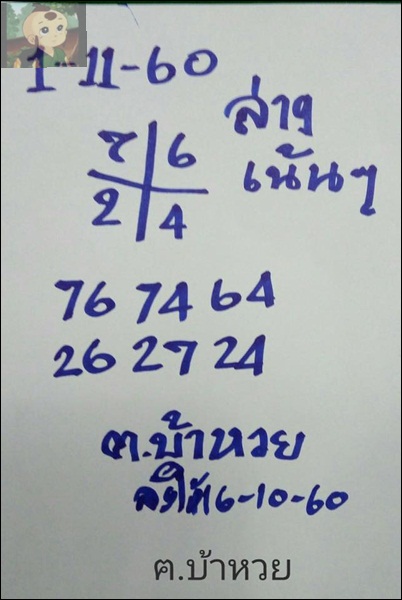 1-11-60
ล่าง
7 6
เน้นๆ
2 4
76 74 64
26 27 24
ฅ.บ้าหวย
16-10-60
ฅ.บ้าหวย